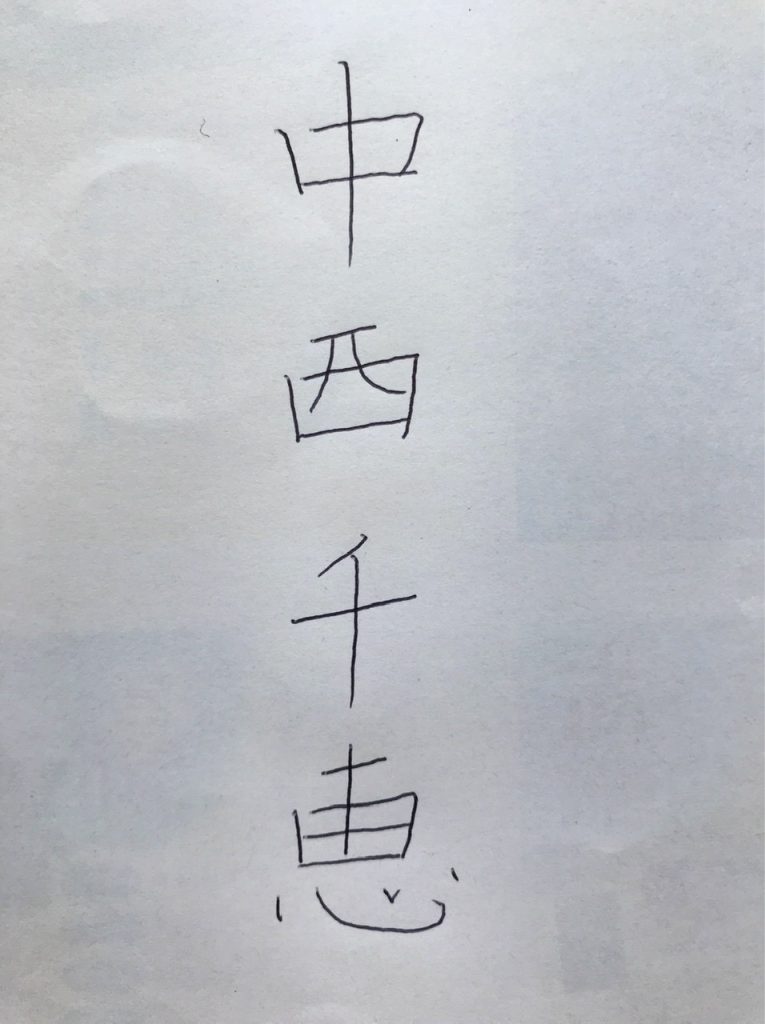 中西千恵